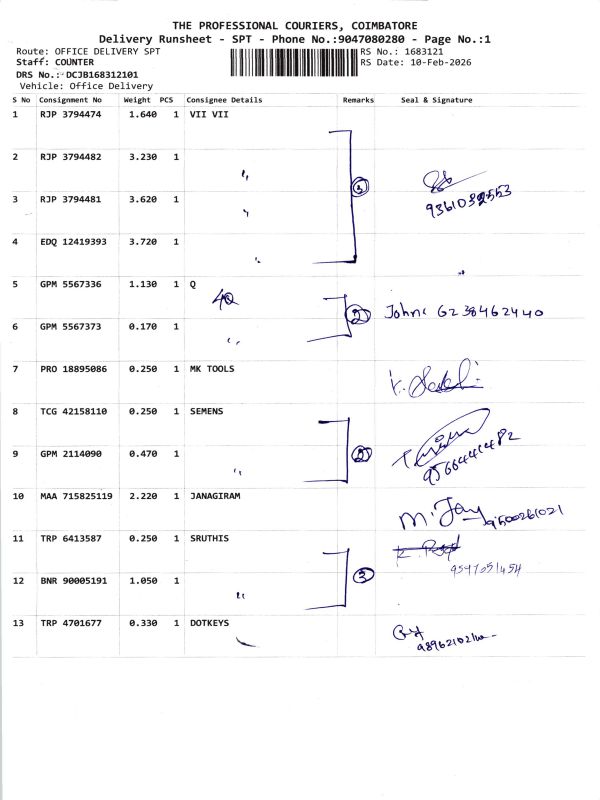 THE PROFESSIONAL COURIERS, COIMBATORE
Delivery Runsheet - SPT - Phone No.:9047080280 - Page No.:1
Route: OFFICE DELIVERY SPT RS No.: 1683121
Staff: COUNTER RS Date: 10-Feb-2026
DRS No.: DCJB168312101
Vehicle: Office Delivery
S No Consignment No Weight PCS Consignee Details Remarks Seal & Signature
1 RJP 3794474 1.640 1 VII VII
2 RJP 3794482 3.230 1 〃
3 RJP 3794481 3.620 1 〃
9361032553
4 EDQ 12419393 3.720 1 〃
5 GPM 5567336 1.130 1 Q
② John 6238462440
6 GPM 5567373 0.170 1 〃
7 PRO 18895086 0.250 1 MK TOOLS
8 TCG 42158110 0.250 1 SEMENS
9 GPM 2114090 0.470 1 〃 ②
9566441482
10 MAA 715825119 2.220 1 JANAGIRAM M. Jay 9500261021
11 TRP 6413587 0.250 1 SRUTHIS
12 BNR 90005191 1.050 1 〃 ③ 9597051454
13 TRP 4701677 0.330 1 DOTKEYS